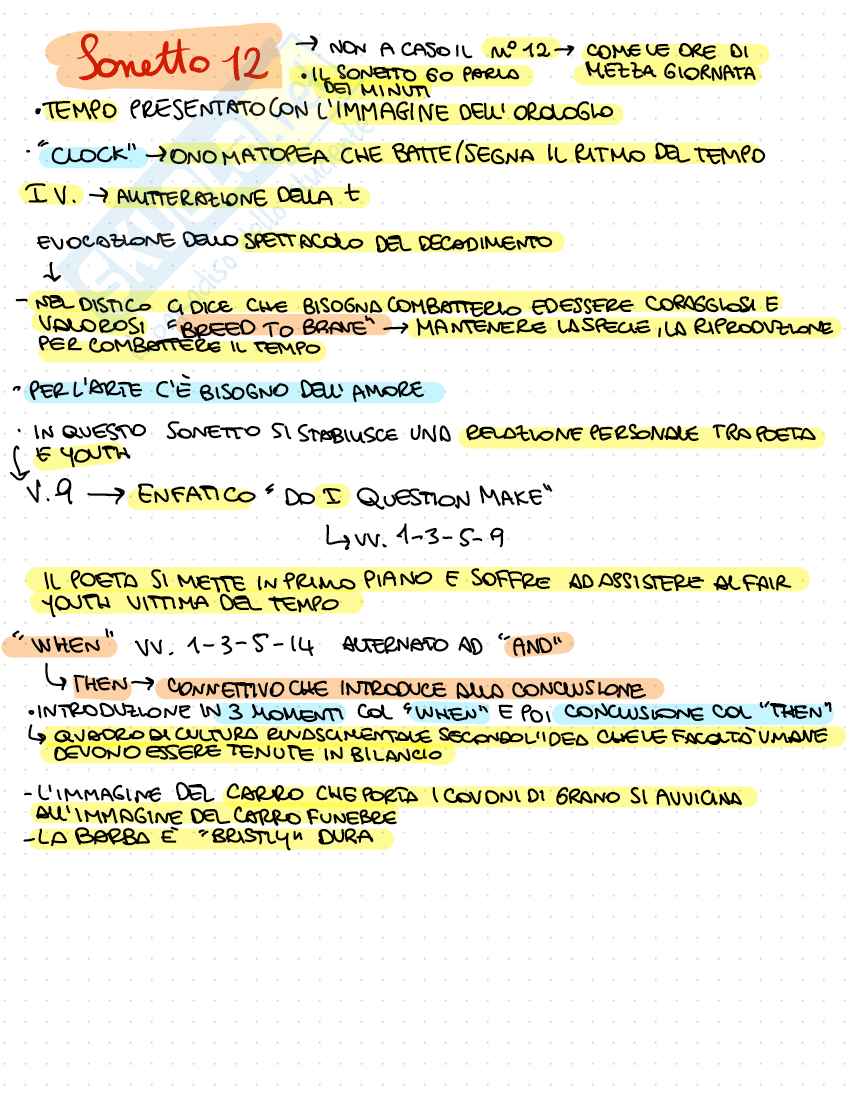 Sonetto 12 → NON A CASO IL N° 12 → COME LE ORE DI MEZZA GIORNATA
• IL SONETTO 60 PARLA DEI MINUTI
• TEMPO PRESENTATO CON L'IMMAGINE DELL'OROLOGIO
• "CLOCK" → ONOMATOPEA CHE BATTE/SEGNA IL RITMO DEL TEMPO
I V. → ALLITTERAZIONE DELLA t
EVOCAZIONE DELLO SPETTACOLO DEL DECADIMENTO
↓
- NEL DISTICO CI DICE CHE BISOGNA COMBATTERLO ED ESSERE CORAGGIOSI E
VALOROSI "BREED TO BRAVE" → MANTENERE LA SPECIE, LA RIPRODUZIONE
PER COMBATTERE IL TEMPO
• PER L'ARTE C'È BISOGNO DELL'AMORE
• IN QUESTO SONETTO SI STABILISCE UNA RELAZIONE PERSONALE TRA POETA
E YOUTH
V. 9 → ENFATICO "DO I QUESTION MAKE"
↳ VV. 1-3-5-9
IL POETA SI METTE IN PRIMO PIANO E SOFFRE AD ASSISTERE AL FAIR
YOUTH VITTIMA DEL TEMPO
"WHEN" VV. 1-3-5-14 ALTERNATO AD "AND"
↳ THEN → CONNETTIVO CHE INTRODUCE ALLA CONCLUSIONE
• INTRODUZIONE IN 3 MOMENTI COL "WHEN" E POI CONCLUSIONE COL "THEN"
↳ QUADRO DI CULTURA RINASCIMENTALE SECONDO L'IDEA CHE LE FACOLTÀ UMANE
DEVONO ESSERE TENUTE IN BILANCIO
- L'IMMAGINE DEL CARRO CHE PORTA I COVONI DI GRANO SI AVVICINA
ALL'IMMAGINE DEL CARRO FUNEBRE
- LA BARBA È "BRISTLY" DURA